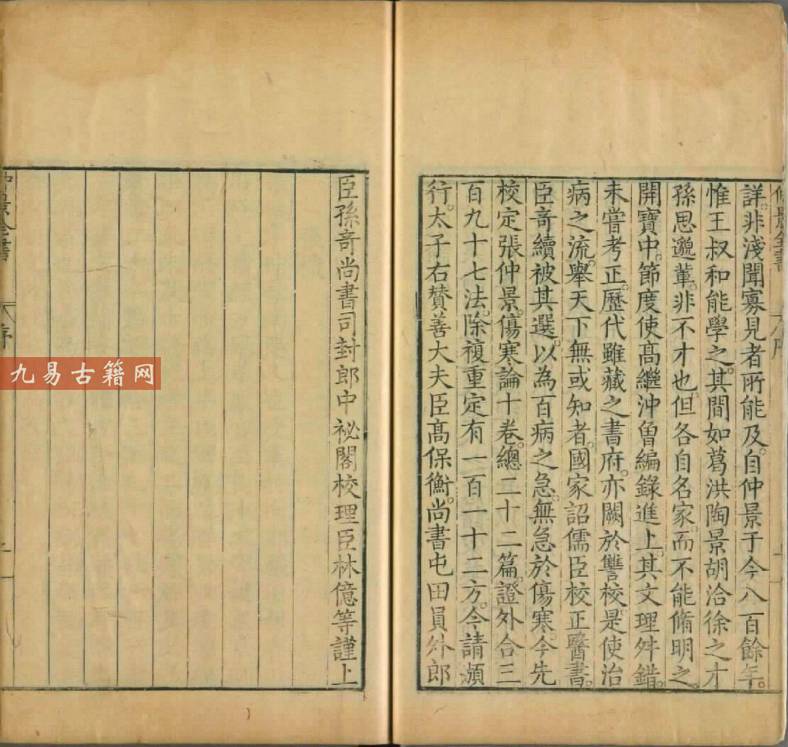 詳。非淺聞寡見者所能及。自仲景于今八百餘年。
惟王叔和能學之。其間如葛洪陶景胡洽徐之才
孫思邈輩。非不才也。但各自名家。而不能脩明之。
開寶中。節度使高繼沖曾編錄進上。其文理舛錯。
未嘗考正。歷代雖藏之書府。亦闕於讐校。是使治
病之流。舉天下無或知者。國家詔儒臣校正醫書。
臣奇續被其選。以為百病之急。無急於傷寒。今先
校定張仲景。傷寒論十卷。總二十二篇。證外合三
百九十七法。除複重定有一百一十二方。今請頒
行。太子右贊善大夫臣高保衡。尚書屯田員外郎
臣孫奇尚書司封郎中祕閣校理臣林億等謹上
序
九易古籍网